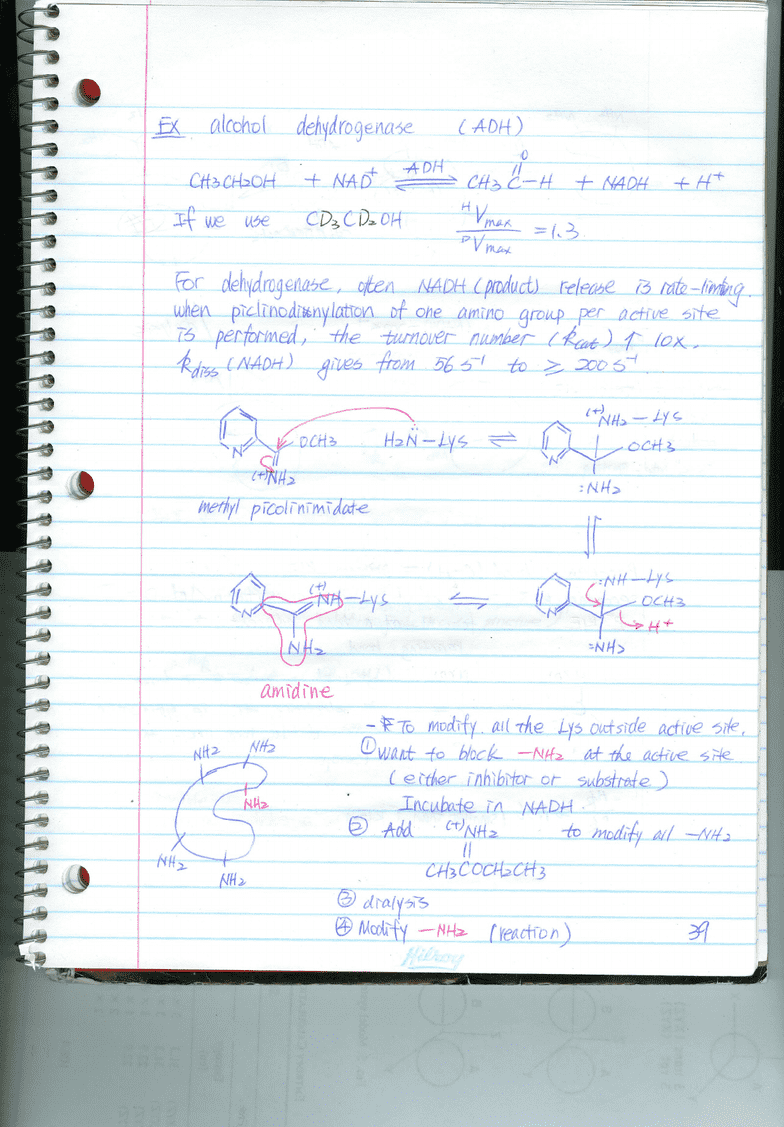 Ex alcohol dehydrogenase (ADH)
ADH
O
CH3CH2OH + NAD+ ⇌ CH3 C-H + NADH + H+
If we use CD3CD2OH HVmax / DVmax = 1.3
For dehydrogenase, often NADH (product) release is rate-limiting.
when piclinodiunylation of one amino group per active site
is performed, the turnover number (kcat) ↑ 10x.
kdiss (NADH) gives from 56 s-1 to ≥ 200 s-1.
N OCH3 H2N-Lys ⇌ (+)NH2-Lys
(+)NH2 N OCH3
:NH2
methyl picolinimidate
(+)NH-Lys ⇌ :NH-Lys
N NH2 N OCH3
H+
:NH2
amidine
- To modify all the Lys outside active site,
① want to block -NH2 at the active site
(either inhibitor or substrate)
Incubate in NADH.
② Add (+)NH2 to modify all -NH2
CH3COCH2CH3
③ dialysis
④ Modify -NH2 (reaction) 39
NH2 NH2
NH2
NH2
NH2
Hilroy